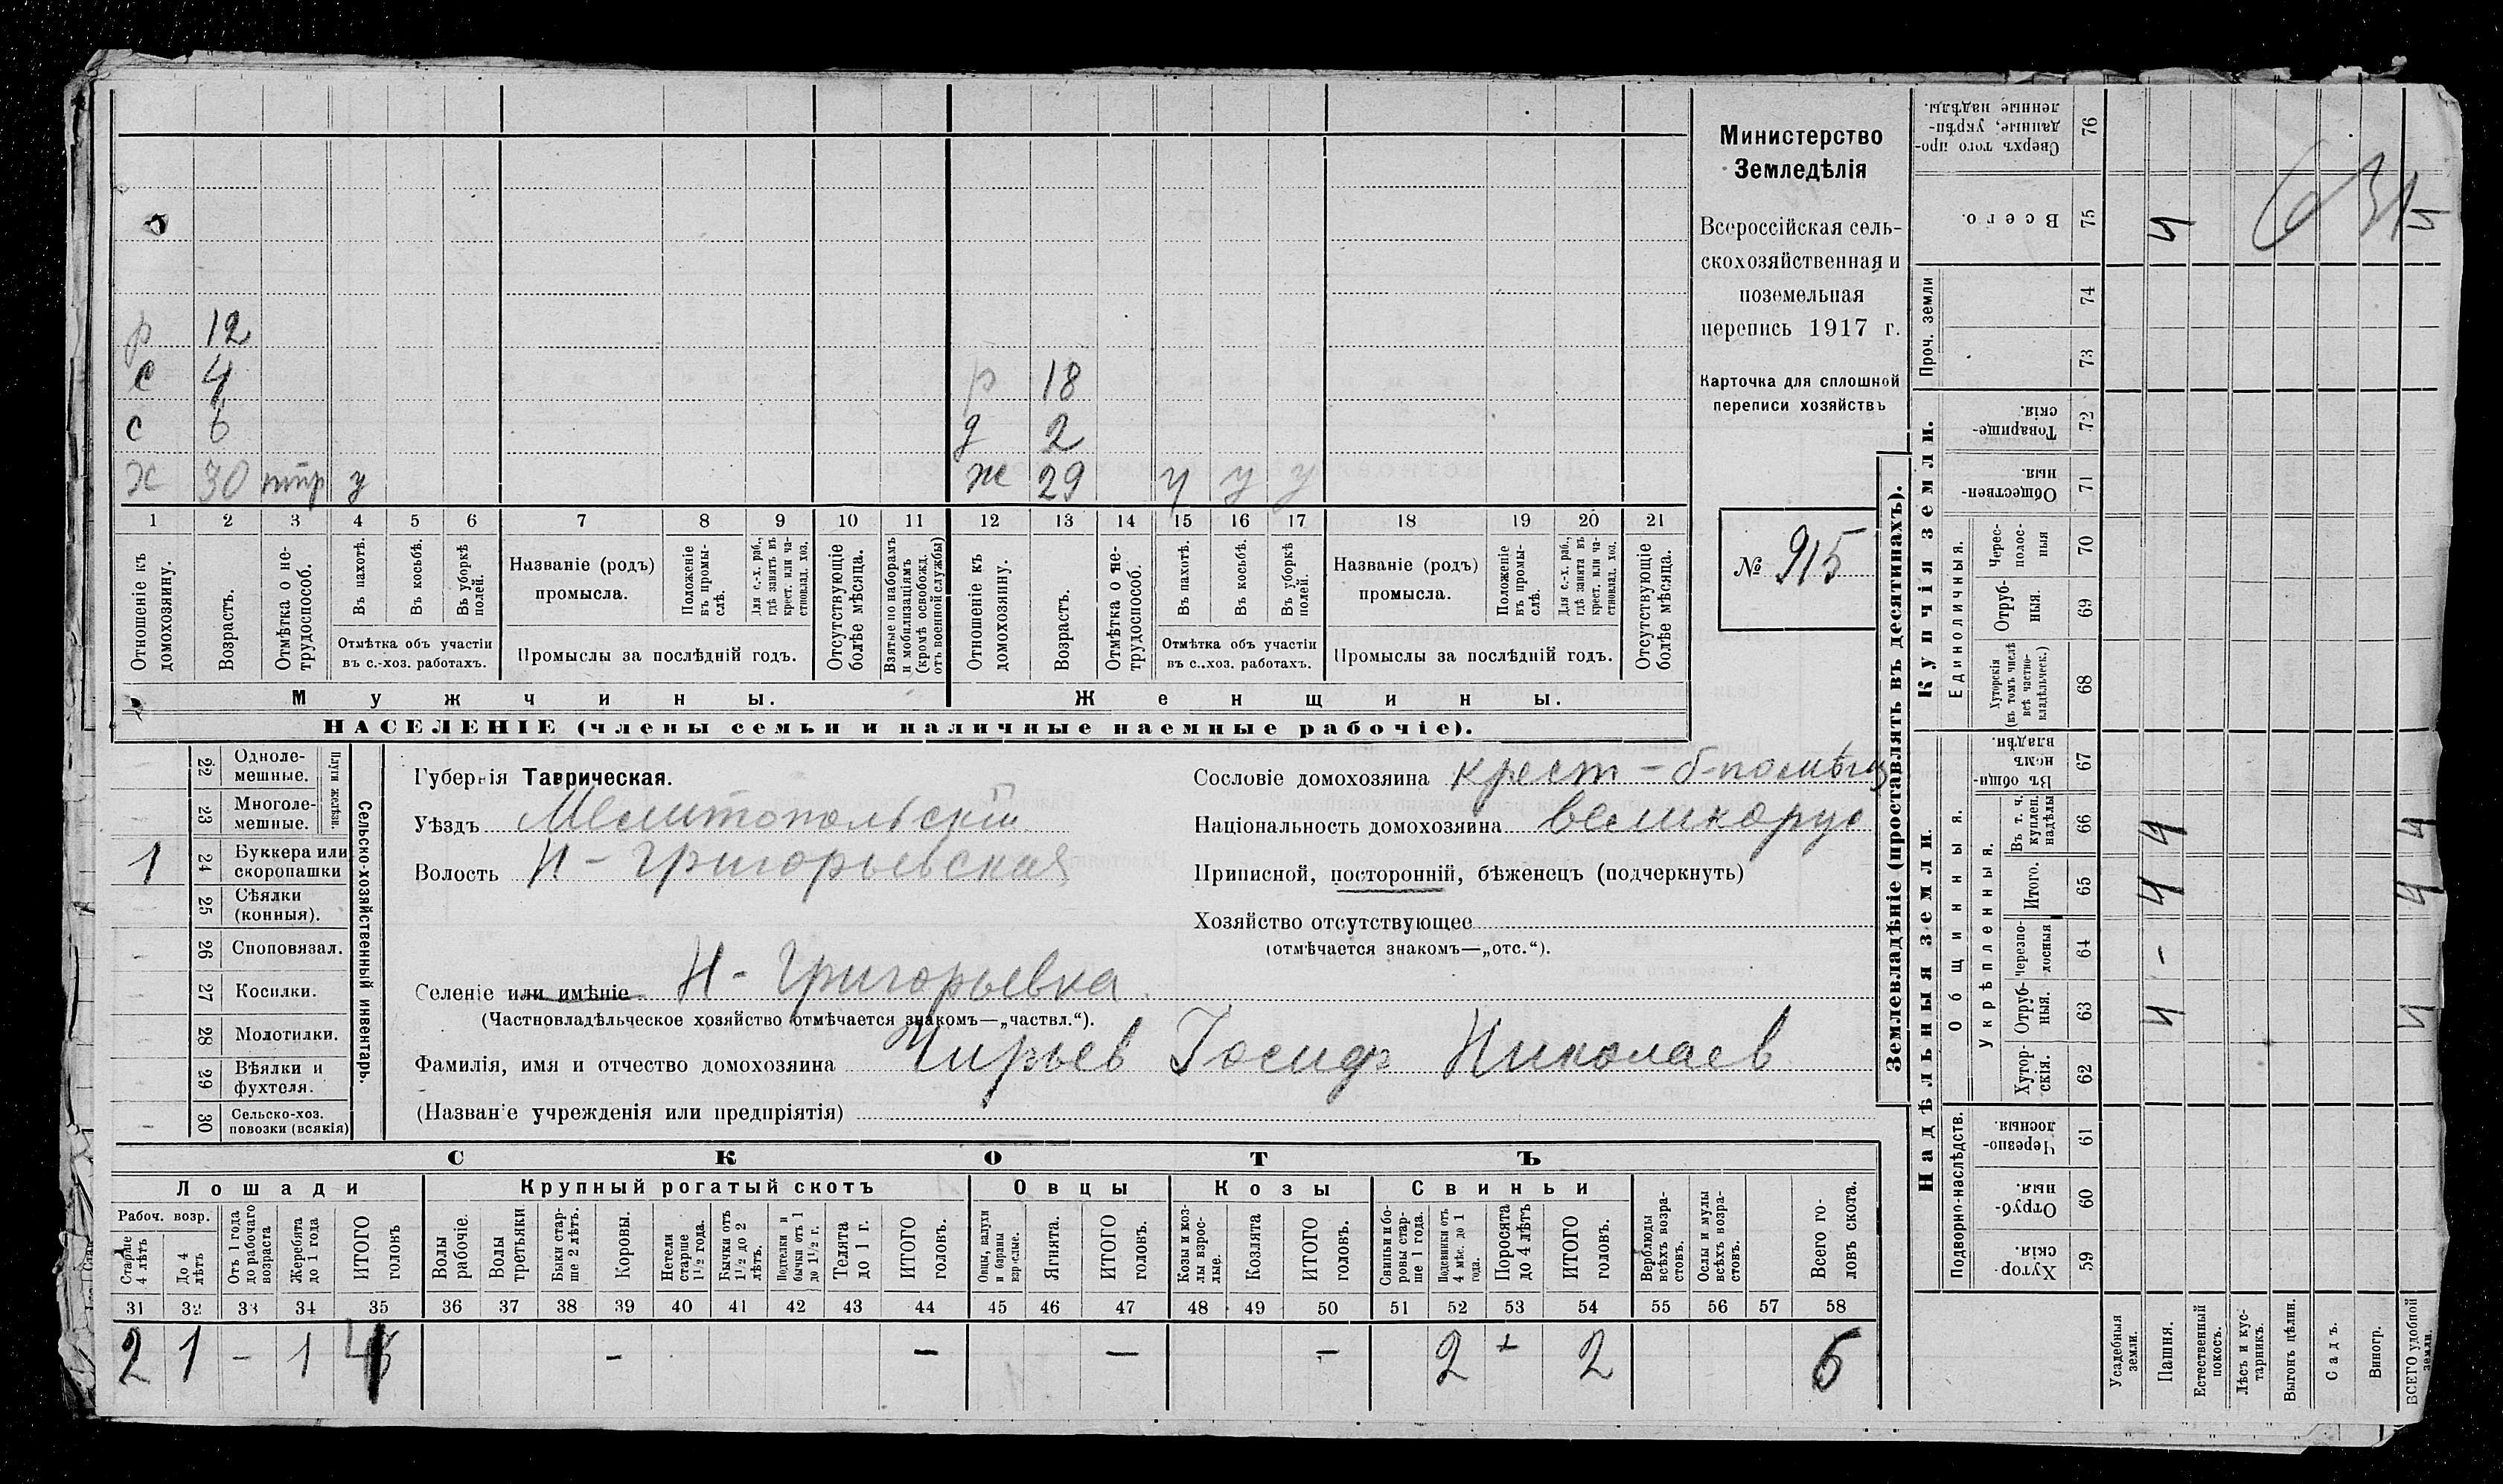 Министерство
Земледѣлія
Всероссійская сель-
скохозяйственная и
поземельная
перепись 1917 г.
Карточка для сплошной
переписи хозяйствъ
№ 915
р 12
с 4
р 18
с 6
д 2
х 30 у
ж 29 у у у
1 2 3 4 5 6 7 8 9 10 11 12 13 14 15 16 17 18 19 20 21
Отношеніе къ домохозяину.
Возрастъ.
Отмѣтка о не-трудоспособ.
Въ пахотѣ.
Въ косьбѣ.
Въ уборкѣ полей.
Отмѣтка объ участіи
въ с.-хоз. работахъ.
Названіе (родъ)
промысла.
Положеніе въ промы-слѣ.
Для с.-х. раб., гдѣ занятъ въ крест. или ча-стновлад. хоз.
Промыслы за послѣдній годъ.
Отсутствующіе болѣе мѣсяца.
Взятые по наборамъ и мобилизаціямъ (кромѣ освобожд. отъ военной службы)
Отношеніе къ домохозяину.
Возрастъ.
Отмѣтка о не-трудоспособ.
Въ пахотѣ.
Въ косьбѣ.
Въ уборкѣ полей.
Отмѣтка объ участіи
въ с..хоз. работахъ.
Названіе (родъ)
промысла.
Положеніе въ промы-слѣ.
Для с.-х. раб., гдѣ занята въ крест. или ча-стновлад. хоз.
Промыслы за послѣдній годъ.
Отсутствующіе болѣе мѣсяца.
Мужчины.
Женщины.
НАСЕЛЕНІЕ (члены семьи и наличные наемные рабочіе).
22 Одноле-мешные.
23 Многоле-мешные.
Плуги желѣзн.
1 24 Буккера или скоропашки
25 Сѣялки (конныя).
26 Сноповязал.
27 Косилки.
28 Молотилки.
29 Вѣялки и фухтеля.
30 Сельско-хоз. повозки (всякія)
Сельско-хозяйственный инвентарь.
Губернія Таврическая.
Уѣздъ Мелитопольскій
Волость Н-Григорьевская
Селеніе или имѣніе Н-Григорьевка
(Частновладѣльческое хозяйство отмѣчается знакомъ—„частвл.“).
Фамилія, имя и отчество домохозяина Чирьев Іосиф Николаев
(Названіе учрежденія или предпріятія)
Сословіе домохозяина крест-б-помѣщ
Національность домохозяина великорус
Приписной, посторонній, бѣженецъ (подчеркнуть)
Хозяйство отсутствующее
(отмѣчается знакомъ—„отс.“).
СКОТЪ
Лошади
Крупный рогатый скотъ
Овцы
Козы
Свиньи
Рабоч. возр.
Старше 4 лѣтъ
До 4 лѣтъ
Отъ 1 года до рабочаго возраста
Жеребята до 1 года
ИТОГО головъ
Волы рабочіе.
Волы третьяки.
Быки стар-ше 2 лѣтъ.
Коровы.
Нетели старше 1½ года.
Бычки отъ 1½ до 2 лѣтъ.
Подтелки и бычки отъ 1 до 1½ г.
Телята до 1 г.
ИТОГО головъ.
Овцы, валухи и бараны взрослые.
Ягнята.
ИТОГО головъ.
Козы и коз-лы взрос-лые.
Козлята
ИТОГО головъ.
Свиньи и бо-ровы стар-ше 1 года.
Подсвинки отъ 4 мѣс. до 1 года.
Поросята до 4 лѣтъ
ИТОГО головъ.
Верблюды всѣхъ возра-стовъ.
Ослы и мулы всѣхъ возра-стовъ.
Всего го-ловъ скота.
31 32 33 34 35 36 37 38 39 40 41 42 43 44 45 46 47 48 49 50 51 52 53 54 55 56 57 58
2 1 - 1 4 - - - - 2 2 6
Землевладѣніе (проставлять въ десятинахъ).
Сверхъ того про-данные, укрѣп-ленные надѣлы. 76
Всего. 75
Проч. земли 74
73
Купчія земли.
Товарище-скія. 72
Обществен-ныя 71
Единоличныя.
Черес-полос-ныя 70
Отруб-ныя. 69
Хуторскія (въ томъ числѣ всѣ частно-владѣльческ.) 68
Надѣльныя земли.
Общинныя.
Въ общи-номъ владѣн. 67
Укрѣпленныя.
Въ т. ч. куплен. надѣлы 66
Итого. 65
Черезпо-лосныя 64
Отруб-ныя. 63
Хутор-скія. 62
Подворно-наслѣдств.
Черезпо-лосныя. 61
Отруб-ныя. 60
Хутор-скія. 59
Усадебныя земли.
Пашня.
Естественный покосъ.
Лѣсъ и кус-тарникъ.
Выгонъ цѣлин.
Садъ.
Виногр.
ВСЕГО удобной земли.
4 4
4 4
4 4
-
4 4